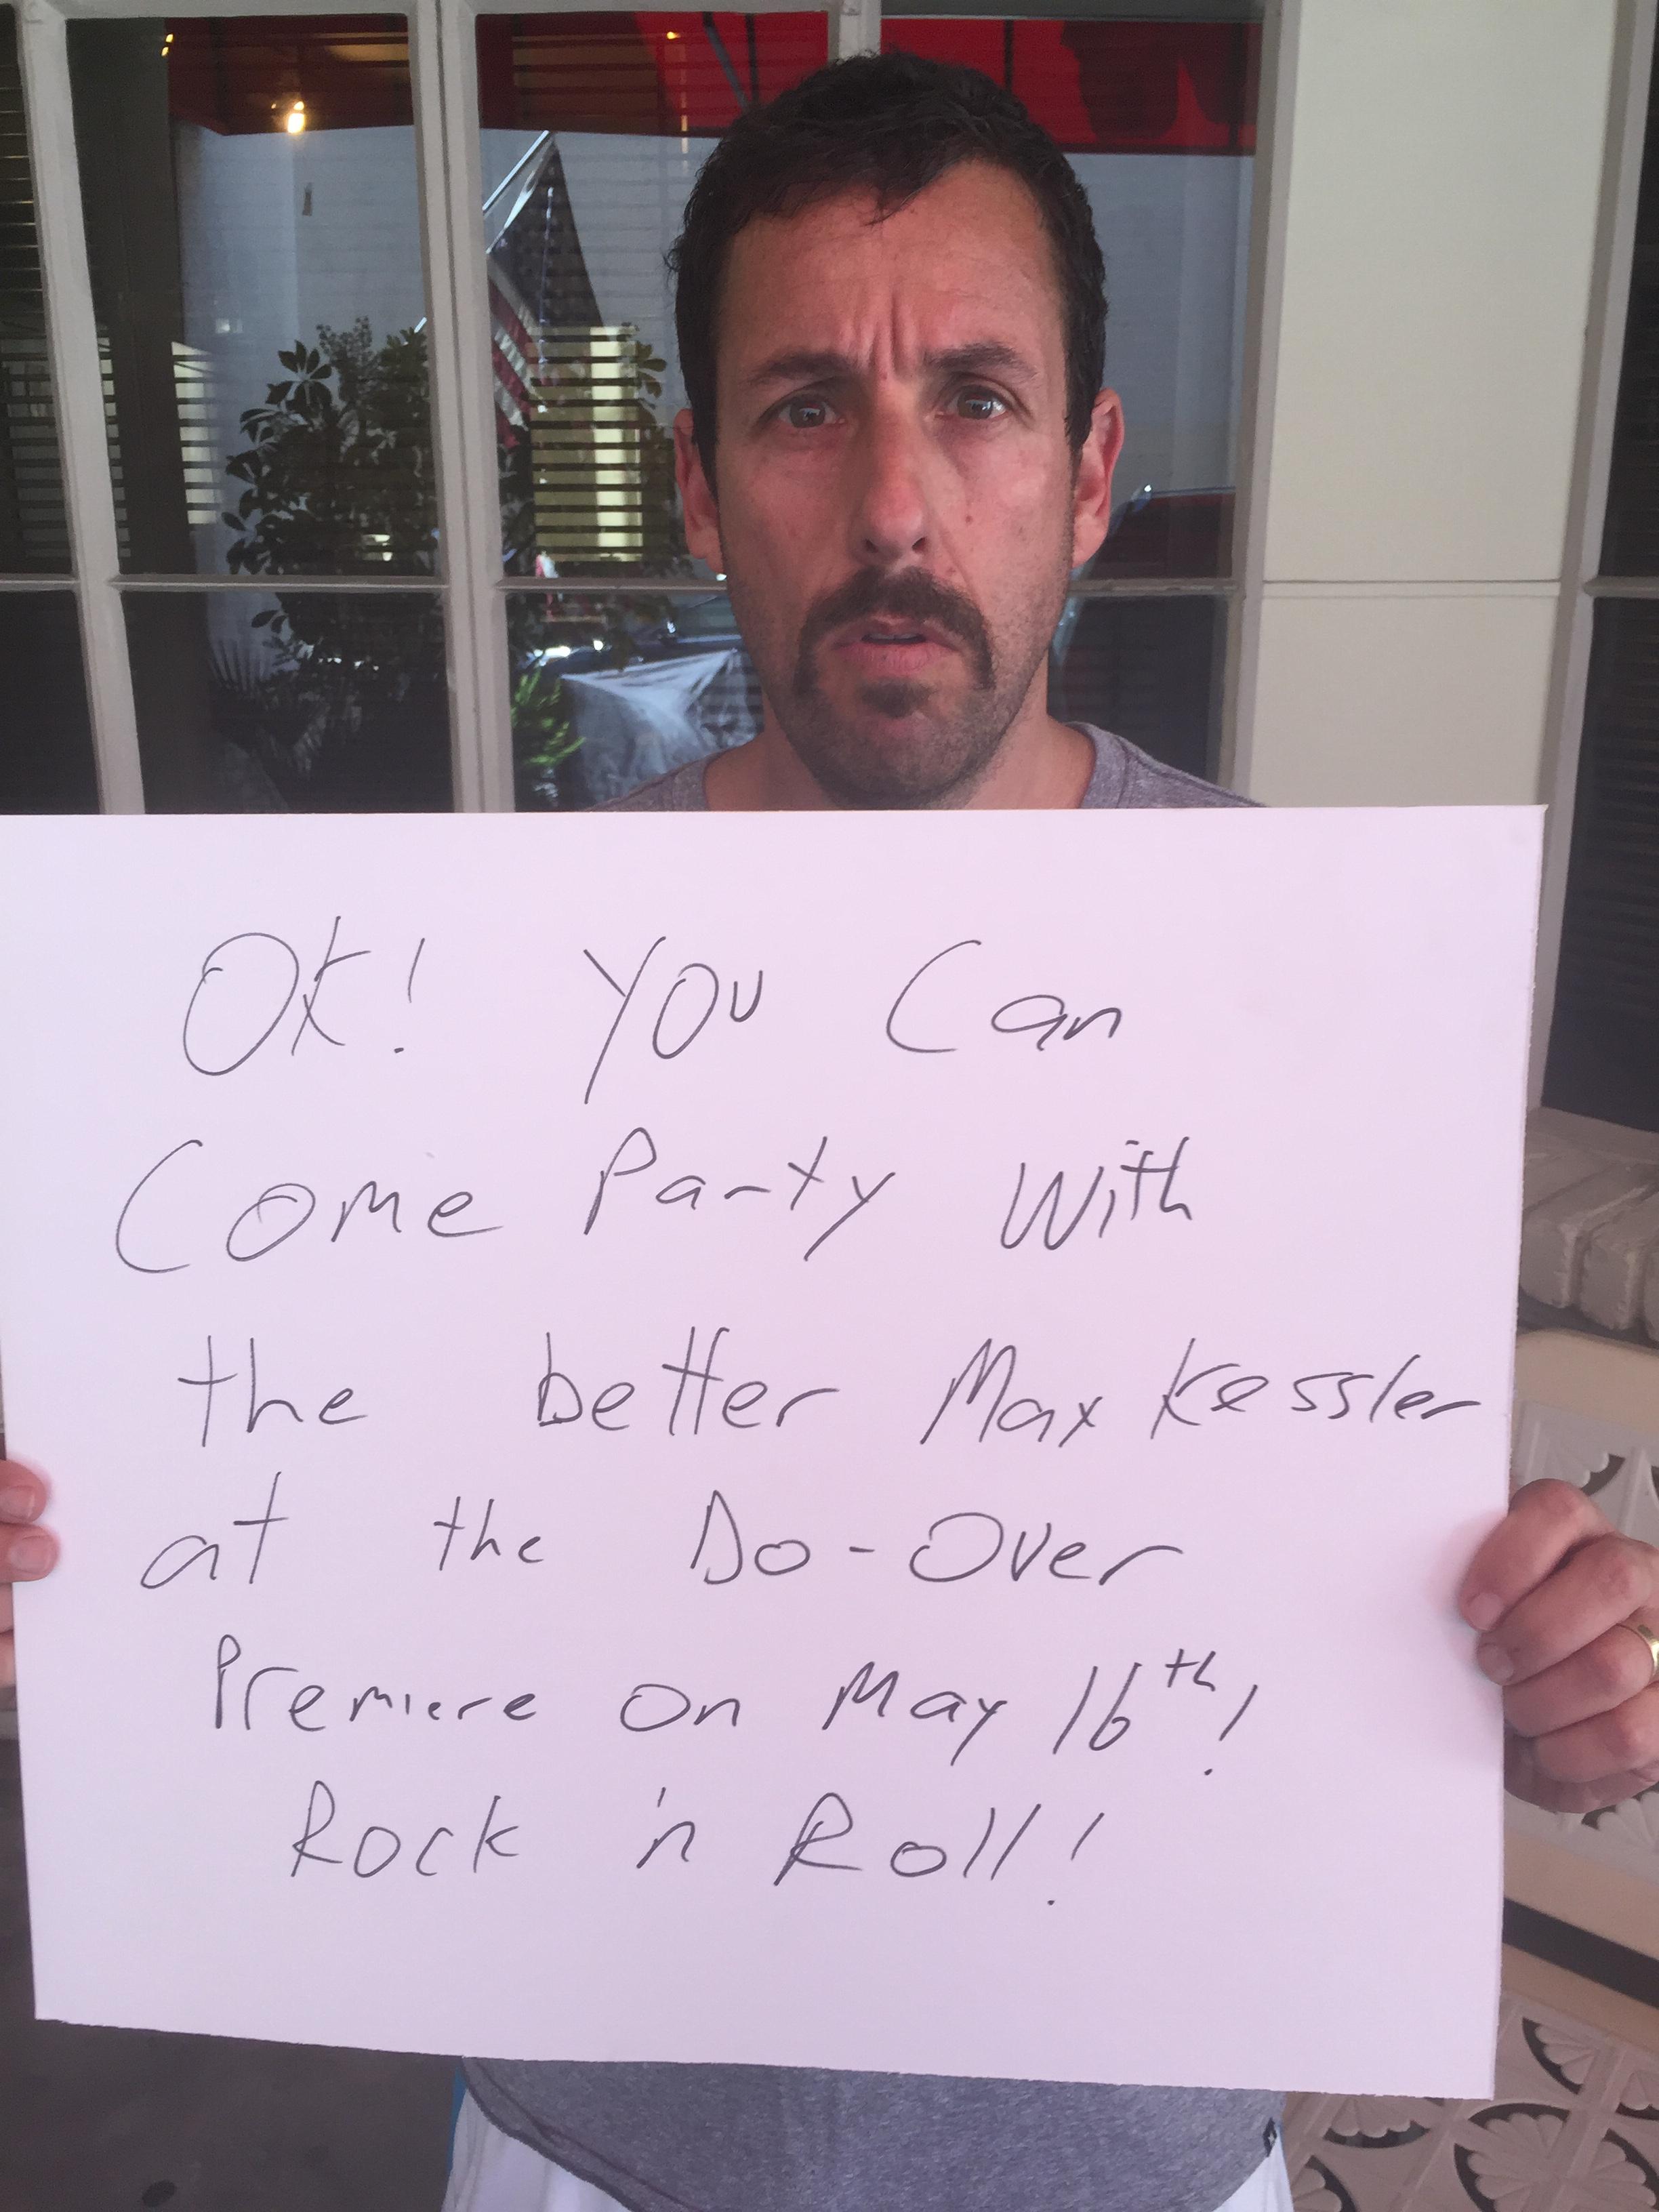 OK! You Can
Come Party With
the better Max Kessler
at the Do-Over
Premiere on May 16th!
Rock 'n Roll!